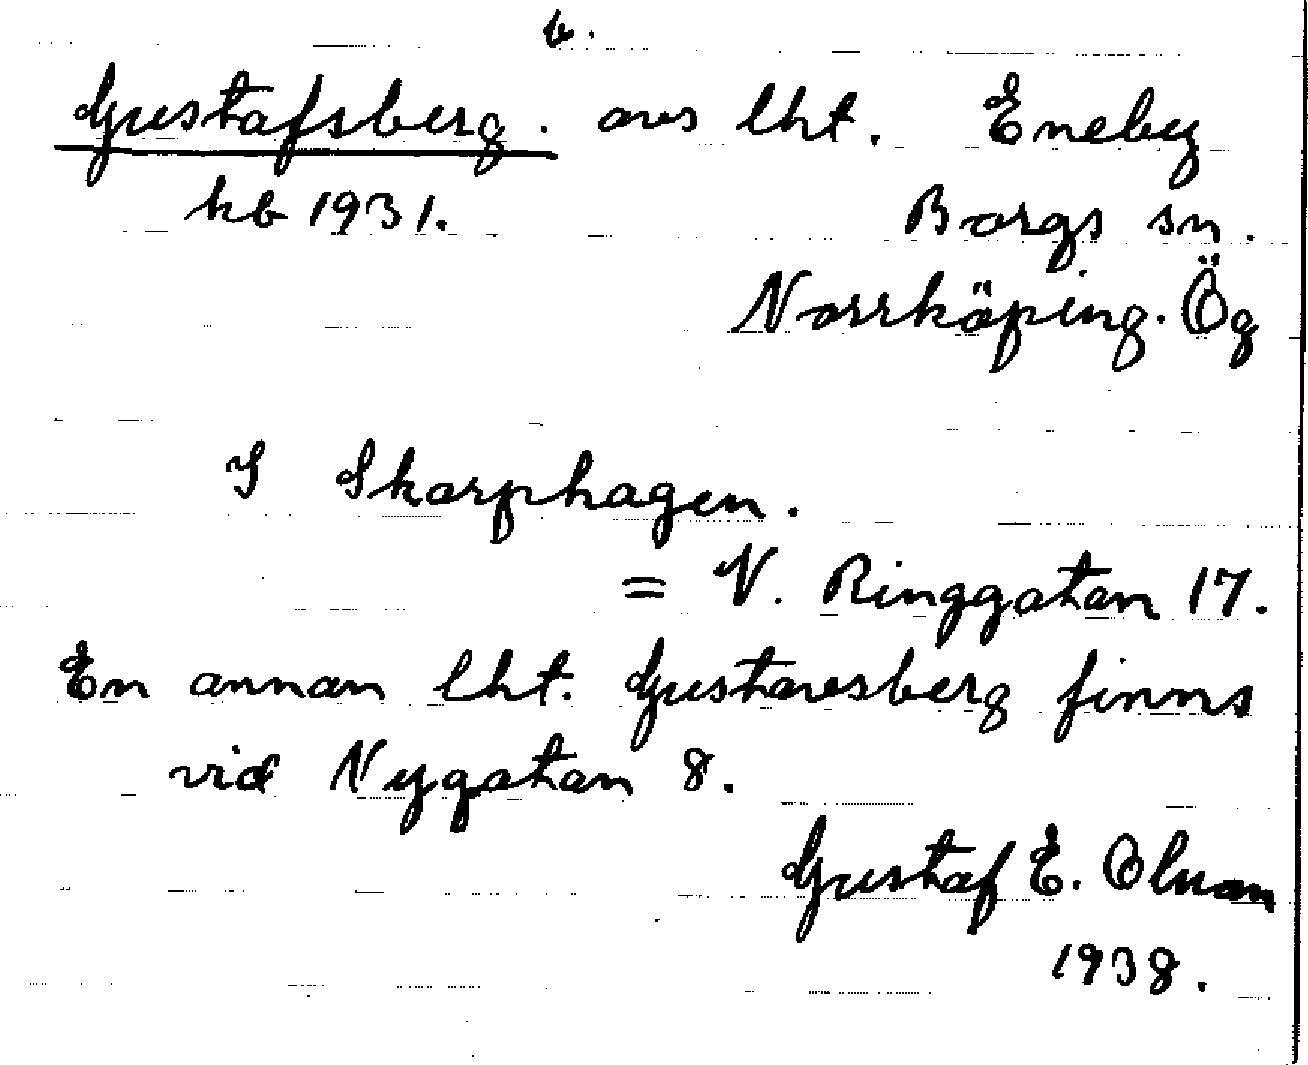 b.
Gustafsberg. avs lht. Eneby
kb 1931. Borgs sn.
Norrköping. Ög
I Skarphagen.
= V. Ringgatan 17.
En annan lht. Gustavsberg finns
vid Nygatan 8.
Gustaf E. Olsson
1938.